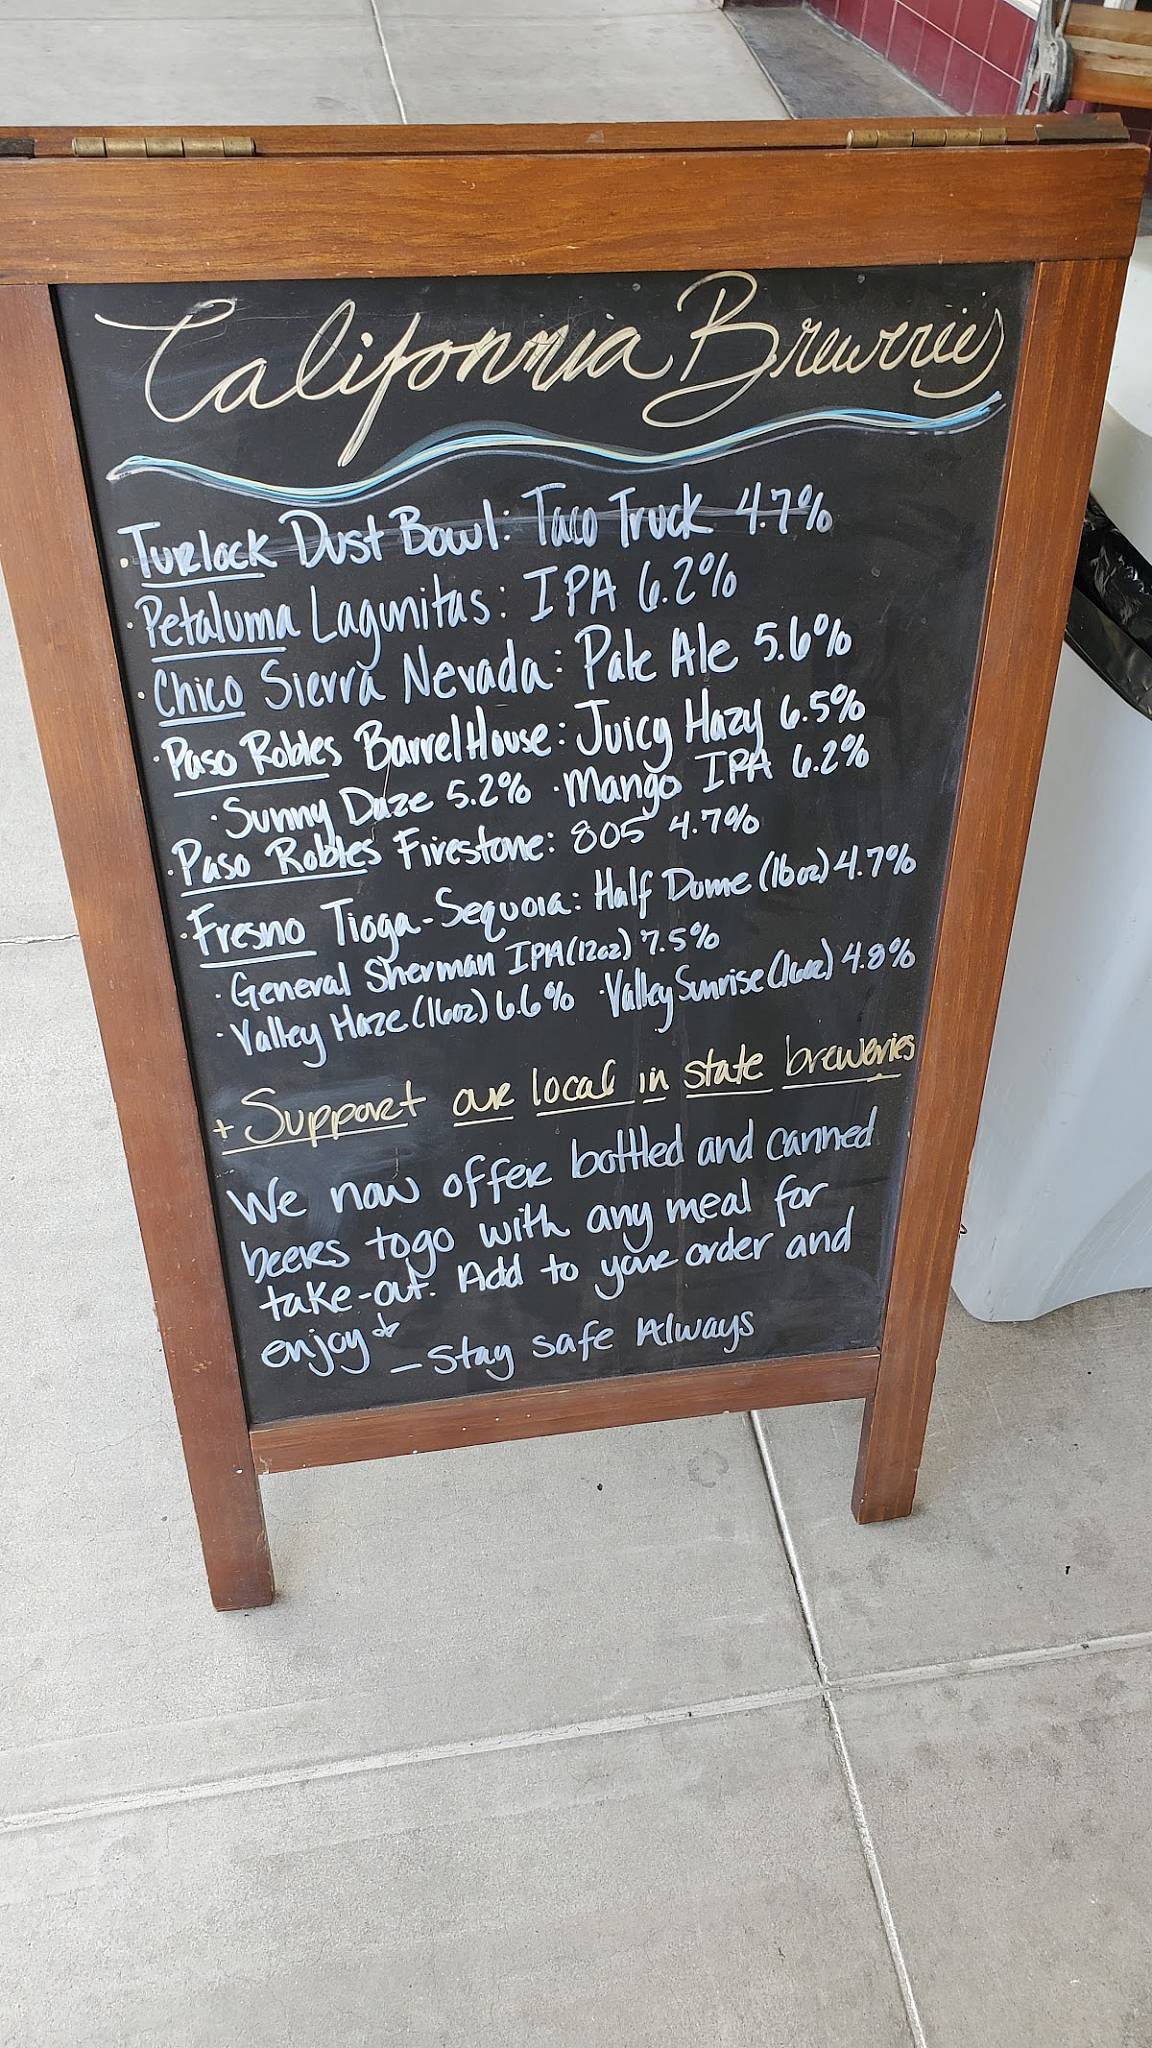 California Breweries
· Turlock Dust Bowl: Taco Truck 4.7%
· Petaluma Lagunitas: IPA 6.2%
· Chico Sierra Nevada: Pale Ale 5.6%
· Paso Robles BarrelHouse: Juicy Hazy 6.5%
· Sunny Daze 5.2% · Mango IPA 6.2%
· Paso Robles Firestone: 805 4.7%
· Fresno Tioga-Sequoia: Half Dome (16oz) 4.7%
· General Sherman IPA (12oz) 7.5%
· Valley Haze (16oz) 6.6% · Valley Sunrise (16oz) 4.8%
+ Support our local in state breweries
We now offer bottled and canned
beers togo with any meal for
take-out. Add to your order and
enjoy
— Stay safe Always